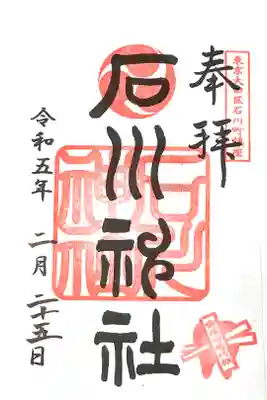 東京大田区石川町鎮座
奉拝
石川神社
令和五年 二月 二十五日